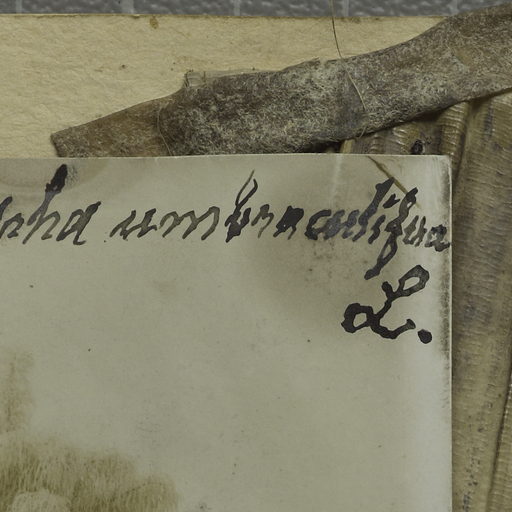 pha umbraculifera
L.